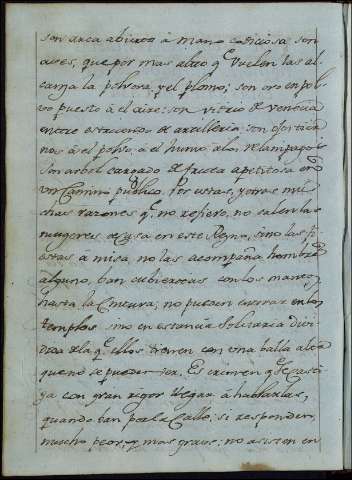 son arca abierta à mano codiciosa son
aves, que por mas alto q̃ vuelen las al-
canza la polvora, y el plomo; son oro en pol-
vo puesto à el aire; son vidrio de venecia
entre estruendo de artilleria; son
à el polvo, à el humo
son arbol cargado de fruta apetitosa en
un Camino publico. Por estas, y otras mu-
chas razones q̃ no refiero, no salen las
mugeres de su casa en este Reyno, sino las fi-
estas à misa, no las acompaña hombre
alguno, ban cubiertas con los mantos
hasta la Cintura; no pueden entrar en los
templos sino en estancia Solitaria divi-
dida de la q̃ ellos tienen con una balla alta
que no se pueden ver. Es crimen q̃ se Casti-
ga con gran rigor llegar à hablarlas,
quando ban por la Calle; si responden,
mucho peor, y mas grave; no asisten en